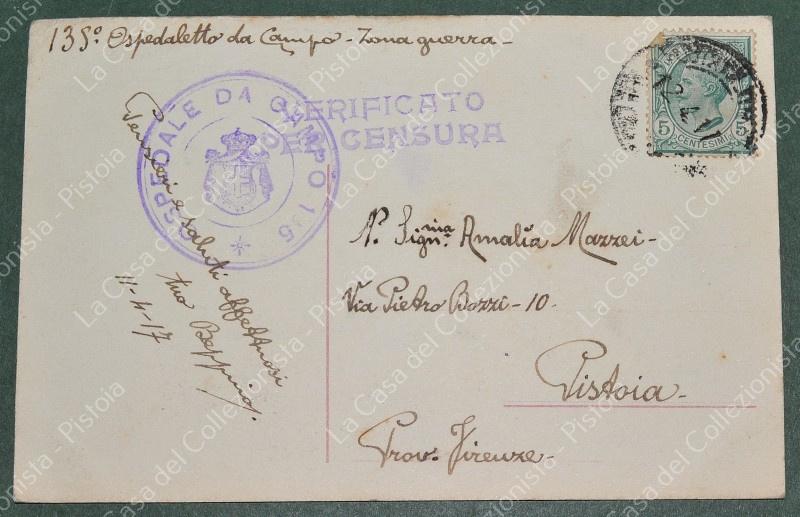 135º Ospedaletto da Campo - Zona guerra -
OSPEDALE DA CAMPO 135
VERIFICATO
PER CENSURA
5 CENTESIMI 5
Pensieri e saluti affettuosi
tuo Beppino.
11-4-17
Sign.ma Amalia Mazzei -
Via Pietro Bozzi - 10 -
Pistoia -
Prov. Firenze -
La Casa del Collezionista - Pistoia